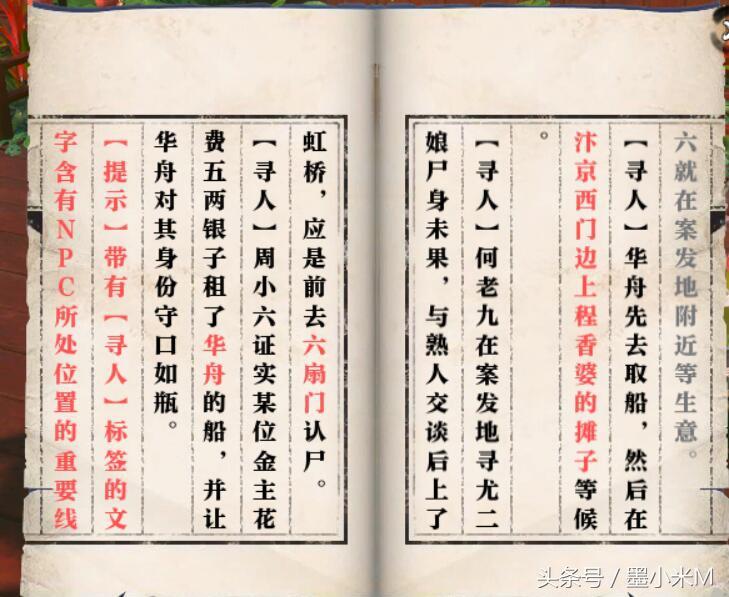 六就在案发地附近等生意。
【寻人】华舟先去取船，然后在
汴京西门边上程香婆的摊子等候
。
【寻人】何老九在案发地寻尤二
娘尸身未果，与熟人交谈后上了
虹桥，应是前去六扇门认尸。
【寻人】周小六证实某位金主花
费五两银子租了华舟的船，并让
华舟对其身份守口如瓶。
【提示】带有【寻人】标签的文
字含有NPC所处位置的重要线
头条号 / 墨小米M